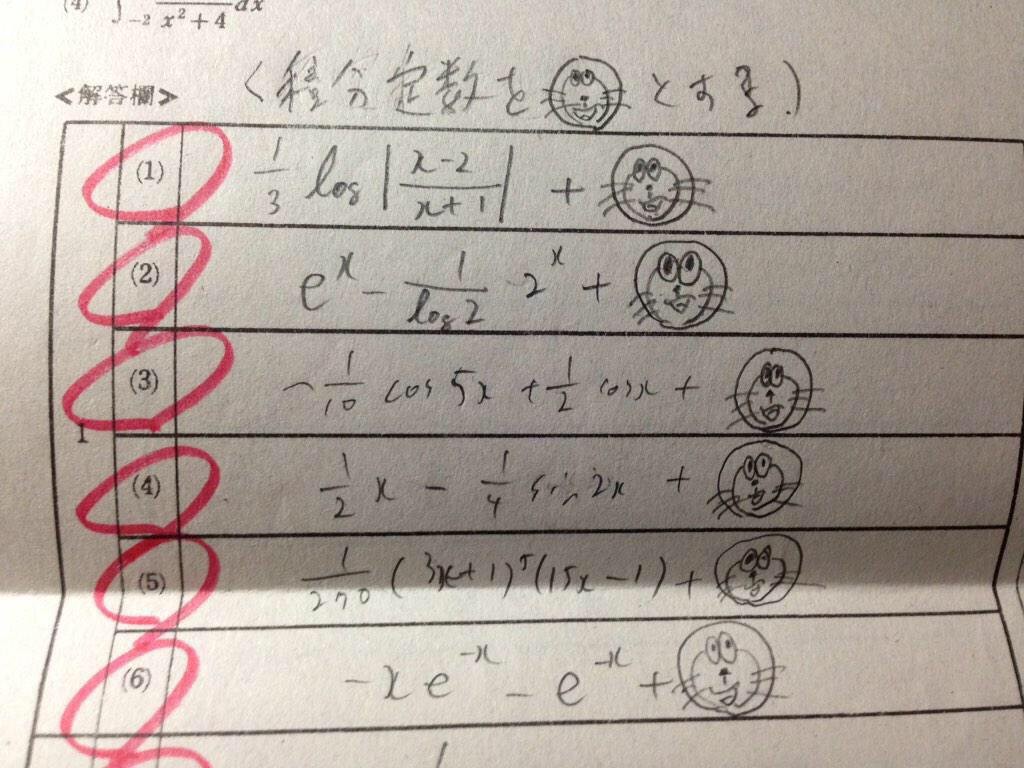 (4) ∫₋₂ x²+4 dx
(積分定数を とする.)
<解答欄>
(1) 1/3 log |x-2/x+1| +
(2) e^x - 1/log2 · 2^x +
(3) -1/10 cos5x + 1/2 cosx +
1
(4) 1/2 x - 1/4 sin2x +
(5) 1/270 (3x+1)^5 (15x-1) +
(6) -xe^-x - e^-x +